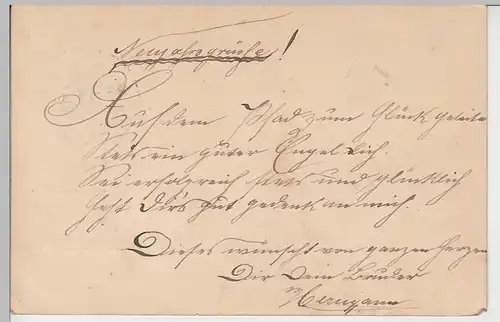 Neujahrsgrüße!
Auf dem Pfad zum Glück geleite
Stets ein guter Engel Dich.
Sei erfolgreich stets und glücklich
Geht Dirs gut gedenk an mich.
Dieses wünscht von ganzen Herzen
Dir Dein Bruder
Hermann